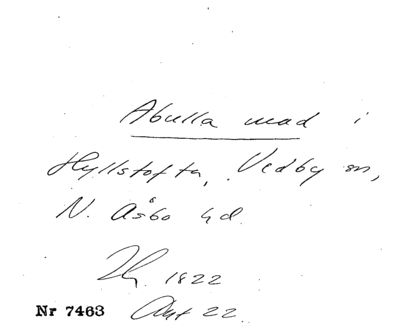 Abulla mad i
Hyllstofta, Vedby sn,
N. Åsbo hd.
1822
Nr 7463 Akt 22.